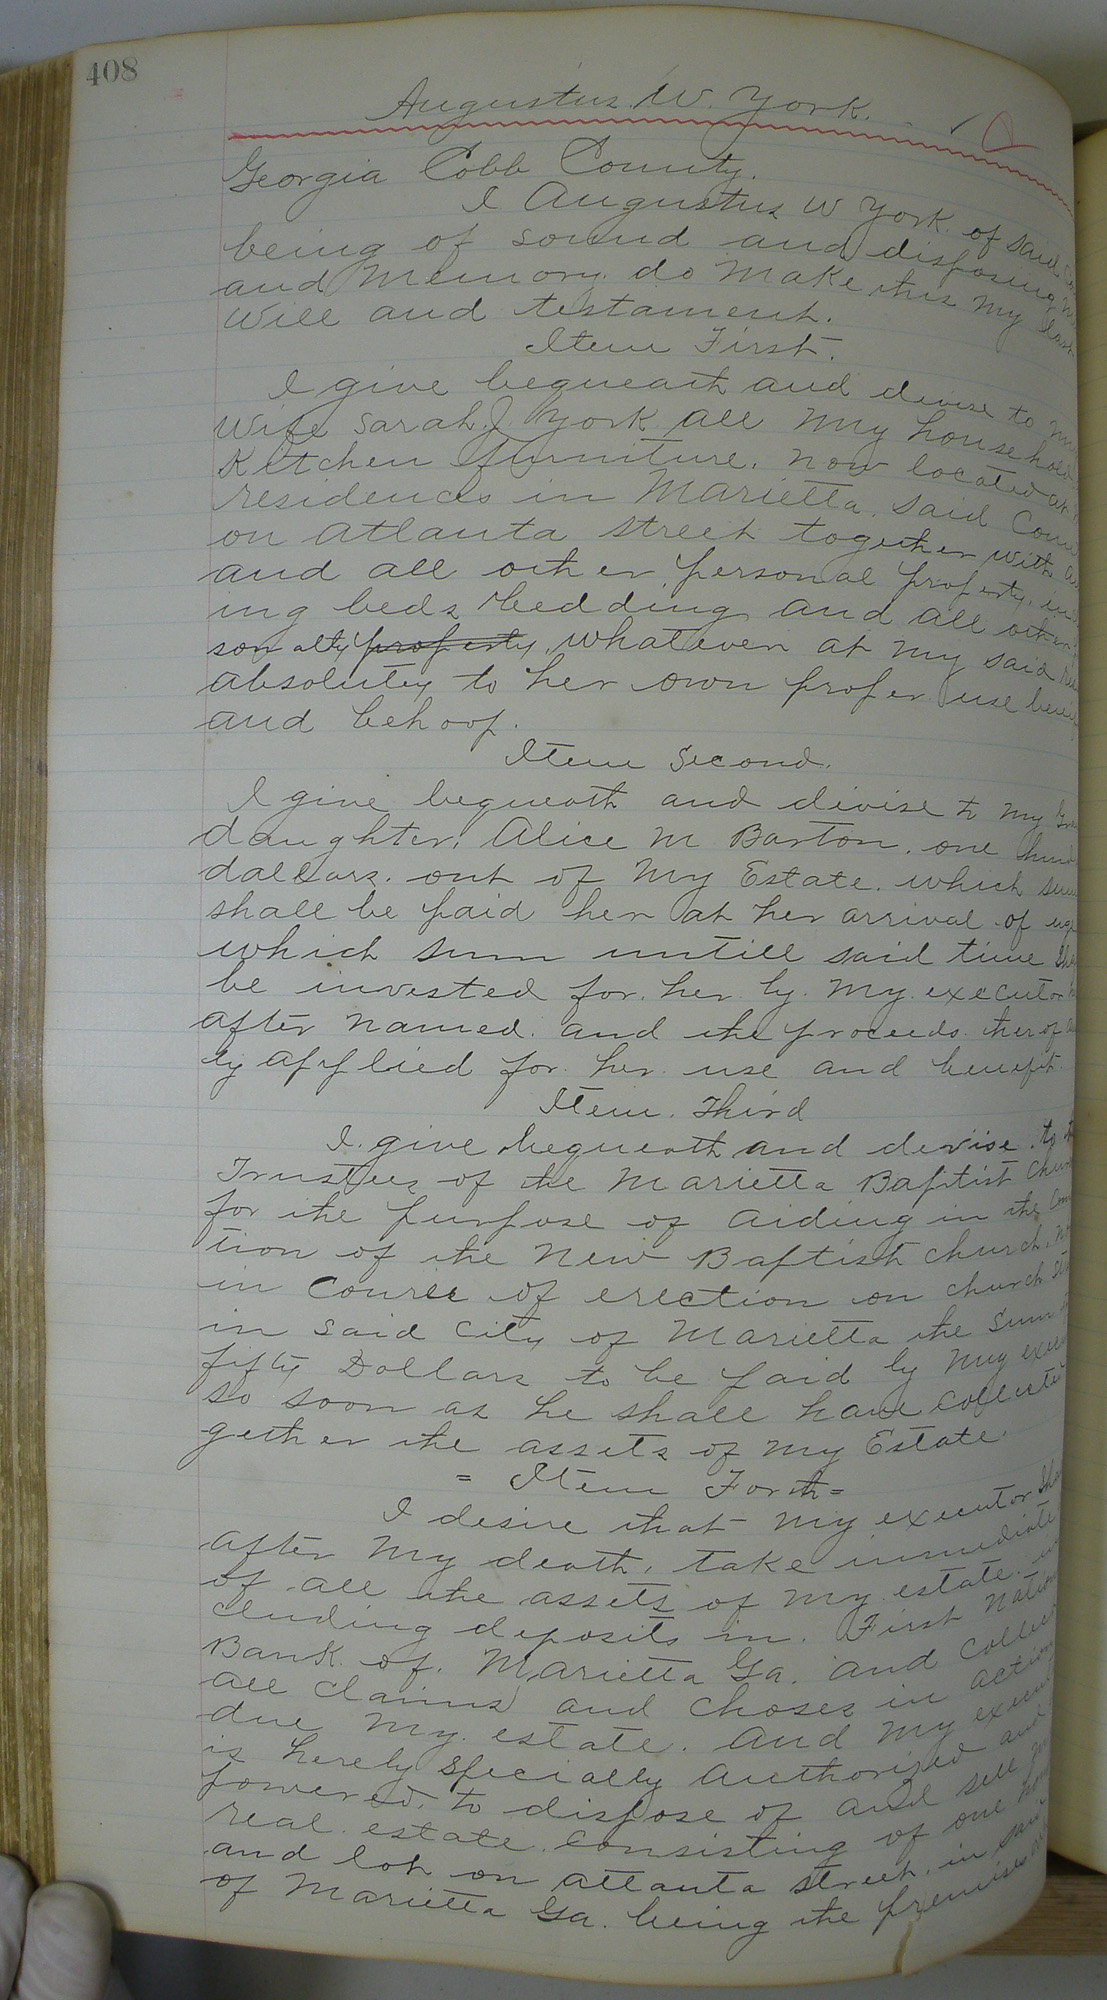 408
Augustus W. York.
Georgia Cobb County.
I Augustus W York. of said
being of sound and disposing
and Memory. do Make this My Last
Will and testament.
Item First.
I give bequeath and devise to my
Wife Sarah J York all My household
Kitchen furniture. now located at
residences in Marietta. said
on Atlanta street together with
and all other personal property.
ing beds & bedding and all other
sonalty property, whatever at my said
absolutey to her own proper use
and behoof.
Item Second.
I give bequeath and divise to my
daughter. Alice M Barton. one
dallars. out of My Estate. which sum
shall be paid her at her arrival of
which sum untill said time
be invested for. her by. My. executor
after named. and the proceeds. therof
ly applied for. her use and benefit.
Item. Third
I. give bequeath and devise. to
Trustees of the Marietta Baptist
for the purpose of aiding in the
tion of the New Baptist church.
in Course of erection on church
in said City of Marietta the Sum
fifty Dollars to be paid by My
so soon as he shall have
gether the assets of my Estate.
= Item Forth =
I desire that My executor
after My death, take immediate
of all the assets of My estate.
cluding deposits in. First
Bank of. Marietta Ga. and
all claims and choses in action
due My estate. And My
is hereby specially Authorized and
powered. to dispose of and sell
real estate Consisting of one
and lot on Atlanta street. in
of Marietta Ga. being the premises